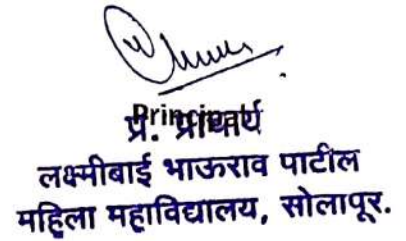 Principal
प्र. प्राचार्य
लक्ष्मीबाई भाऊराव पाटील
महिला महाविद्यालय, सोलापूर.